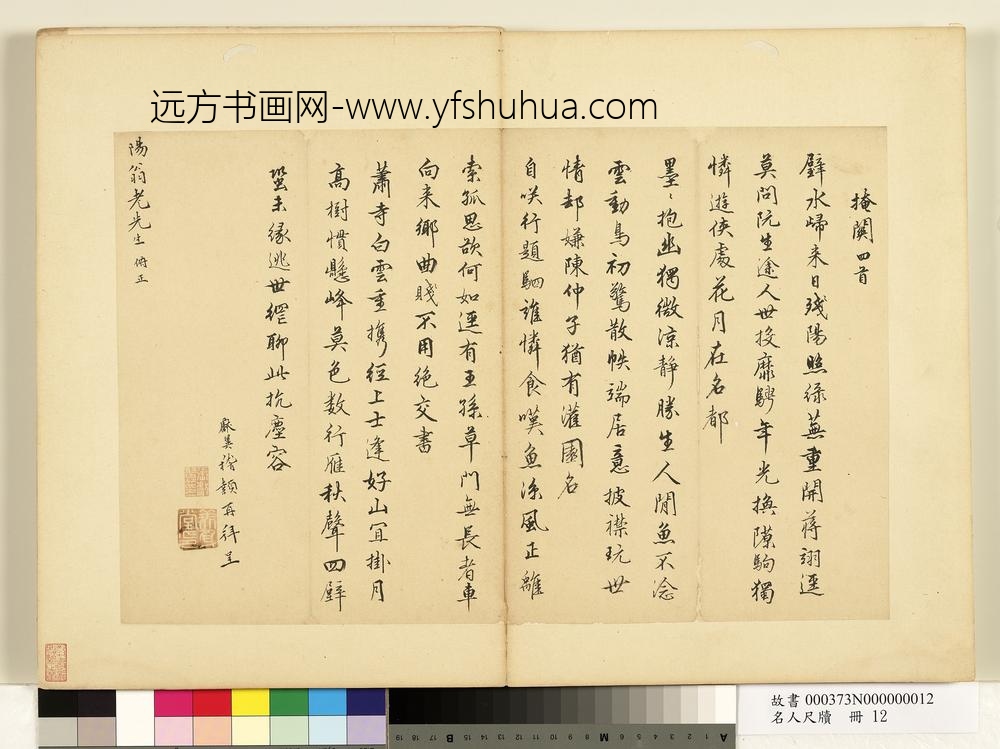 远方书画网-www.yfshuhua.com
掩關四首
璧水歸来日殘陽照綠蕪重開蔣詡逕
莫問阮生途人世投靡驂年光換隙駒獨
憐遊俠處花月在名都
墨〻抱幽獨微涼靜勝生人閒魚不淰
雲動鳥初驚散帙端居意披襟玩世
情却嫌陳仲子猶有灌園名
自咲行題駟誰憐食嘆魚涼風正離
索孤思欲何如逕有王孫草門無長者車
向来鄉曲賤不用絕交書
蕭寺白雲重携經上士逢好山宜掛月
高樹慣懸峰莫色数行雁秋聲四壁
蛩未緣逃世網聊此抗塵容
再拜呈
陽翁老先生 俯正
故書 000373N000000012
名人尺牘 冊 12
A
M
B
19 18 17 16 15